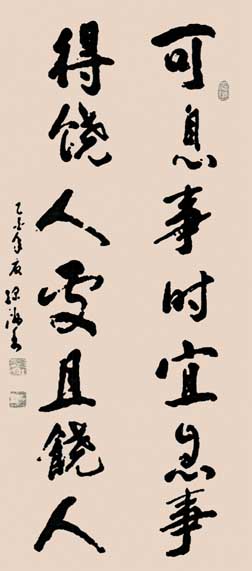 可息事时宜息事
得饶人處且饒人
乙酉年夏